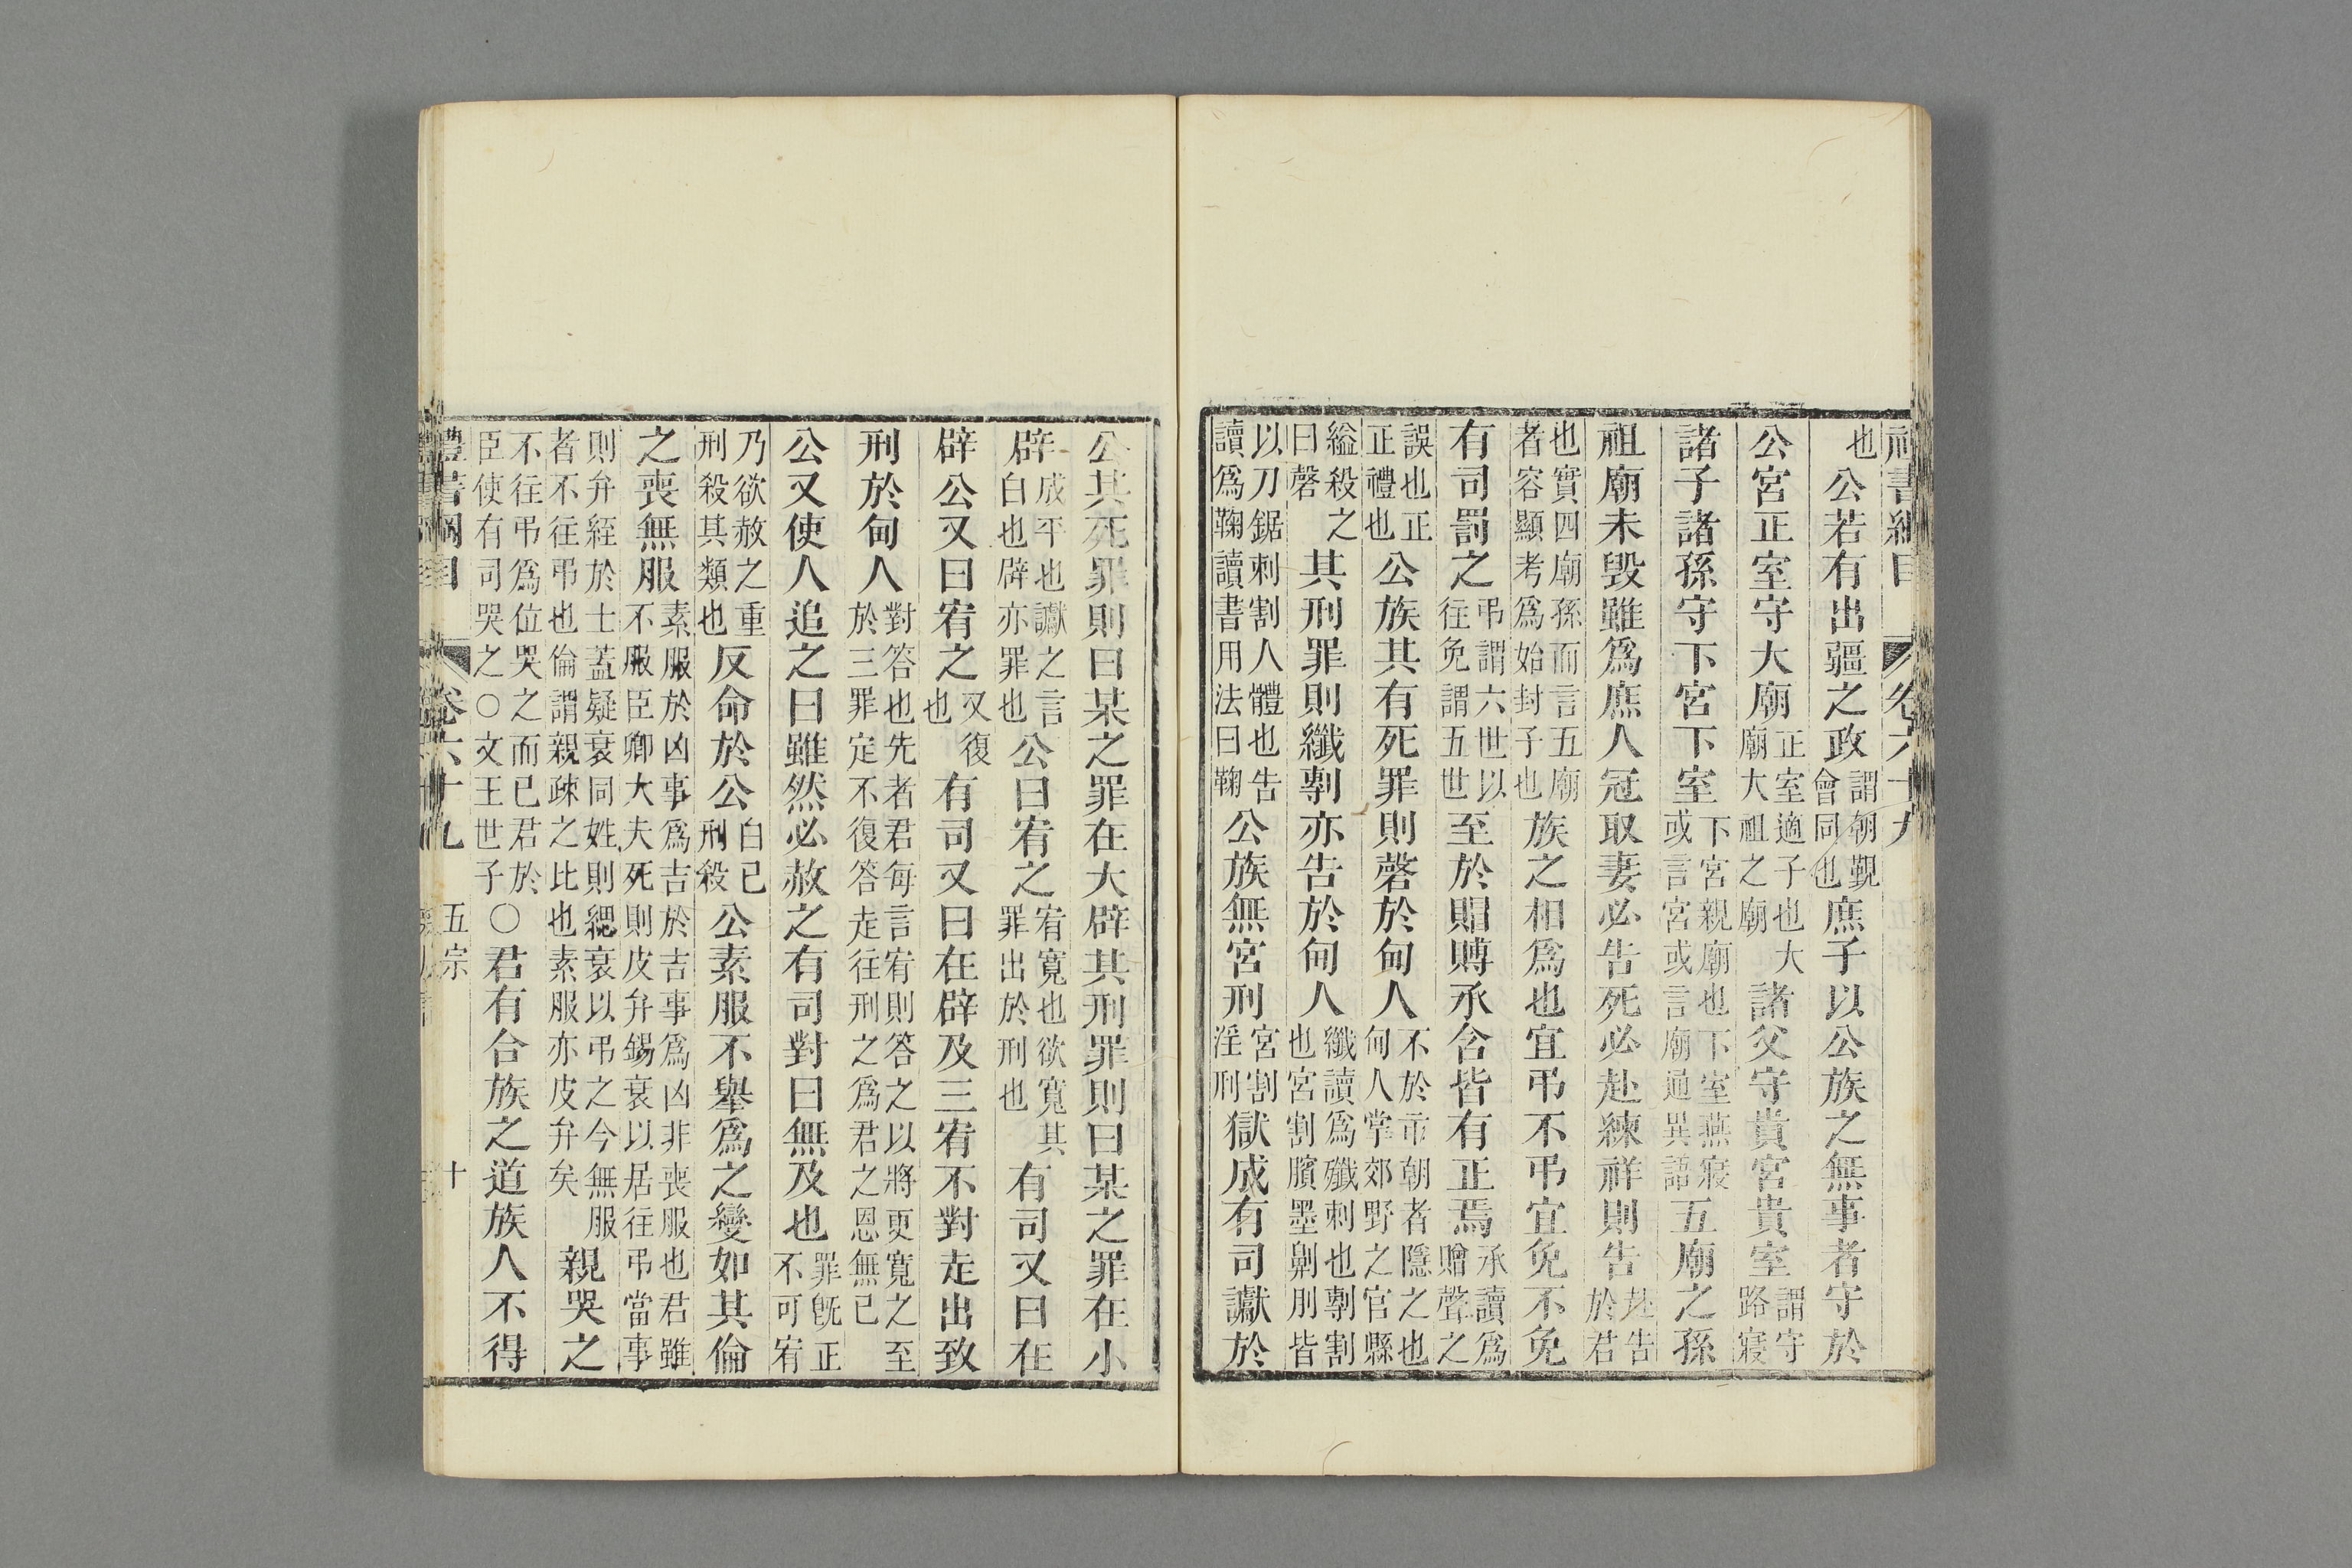 禮書綱目 卷六十九
也公若有出疆之政謂朝覲會同也庶子以公族之無事者守於
公宮正室守大廟正室適子也大廟大祖之廟諸父守貴宮貴室謂守路寢
諸子諸孫守下宮下室下宮親廟也下室燕寢或言宮或言廟通異語五廟之孫
祖廟未毀雖爲庶人冠取妻必告死必赴練祥則告赴告於君
也實四廟孫而言五廟者容顯考爲始封子也族之相爲也宜弔不弔宜免不免
有司罰之弔謂六世以往免謂五世至於賵賻承含皆有正焉承讀爲贈聲之
誤也正正禮也公族其有死罪則磬於甸人不於市朝者隱之也甸人掌郊野之官縣
縊殺之曰磬其刑罪則纖剸亦告於甸人纖讀爲殲刺也剸割也宮割臏墨劓刖皆
以刀鋸刺割人體也告讀爲鞠讀書用法曰鞠公族無宮刑宮割淫刑獄成有司讞於
公其死罪則曰某之罪在大辟其刑罪則曰某之罪在小
辟成平也讞之言白也辟亦罪也公曰宥之宥寬也欲寬其罪出於刑也有司又曰在
辟公又曰宥之又復也有司又曰在辟及三宥不對走出致
刑於甸人對答也先者君每言宥則答之以將更寬之至於三罪定不復答走往刑之爲君之恩無已
公又使人追之曰雖然必赦之有司對曰無及也罪旣正不可宥
乃欲赦之重刑殺其類也反命於公白已刑殺公素服不舉爲之變如其倫
之喪無服素服於凶事爲吉於吉事爲凶非喪服也君雖不服臣卿大夫死則皮弁錫衰以居往弔當事
則弁絰於士蓋疑衰同姓則緦衰以弔之今無服者不往弔也倫謂親疎之比也素服亦皮弁矣親哭之
不往弔爲位哭之而已君於臣使有司哭之○文王世子○君有合族之道族人不得
禮書綱目 卷六十九 五宗 十